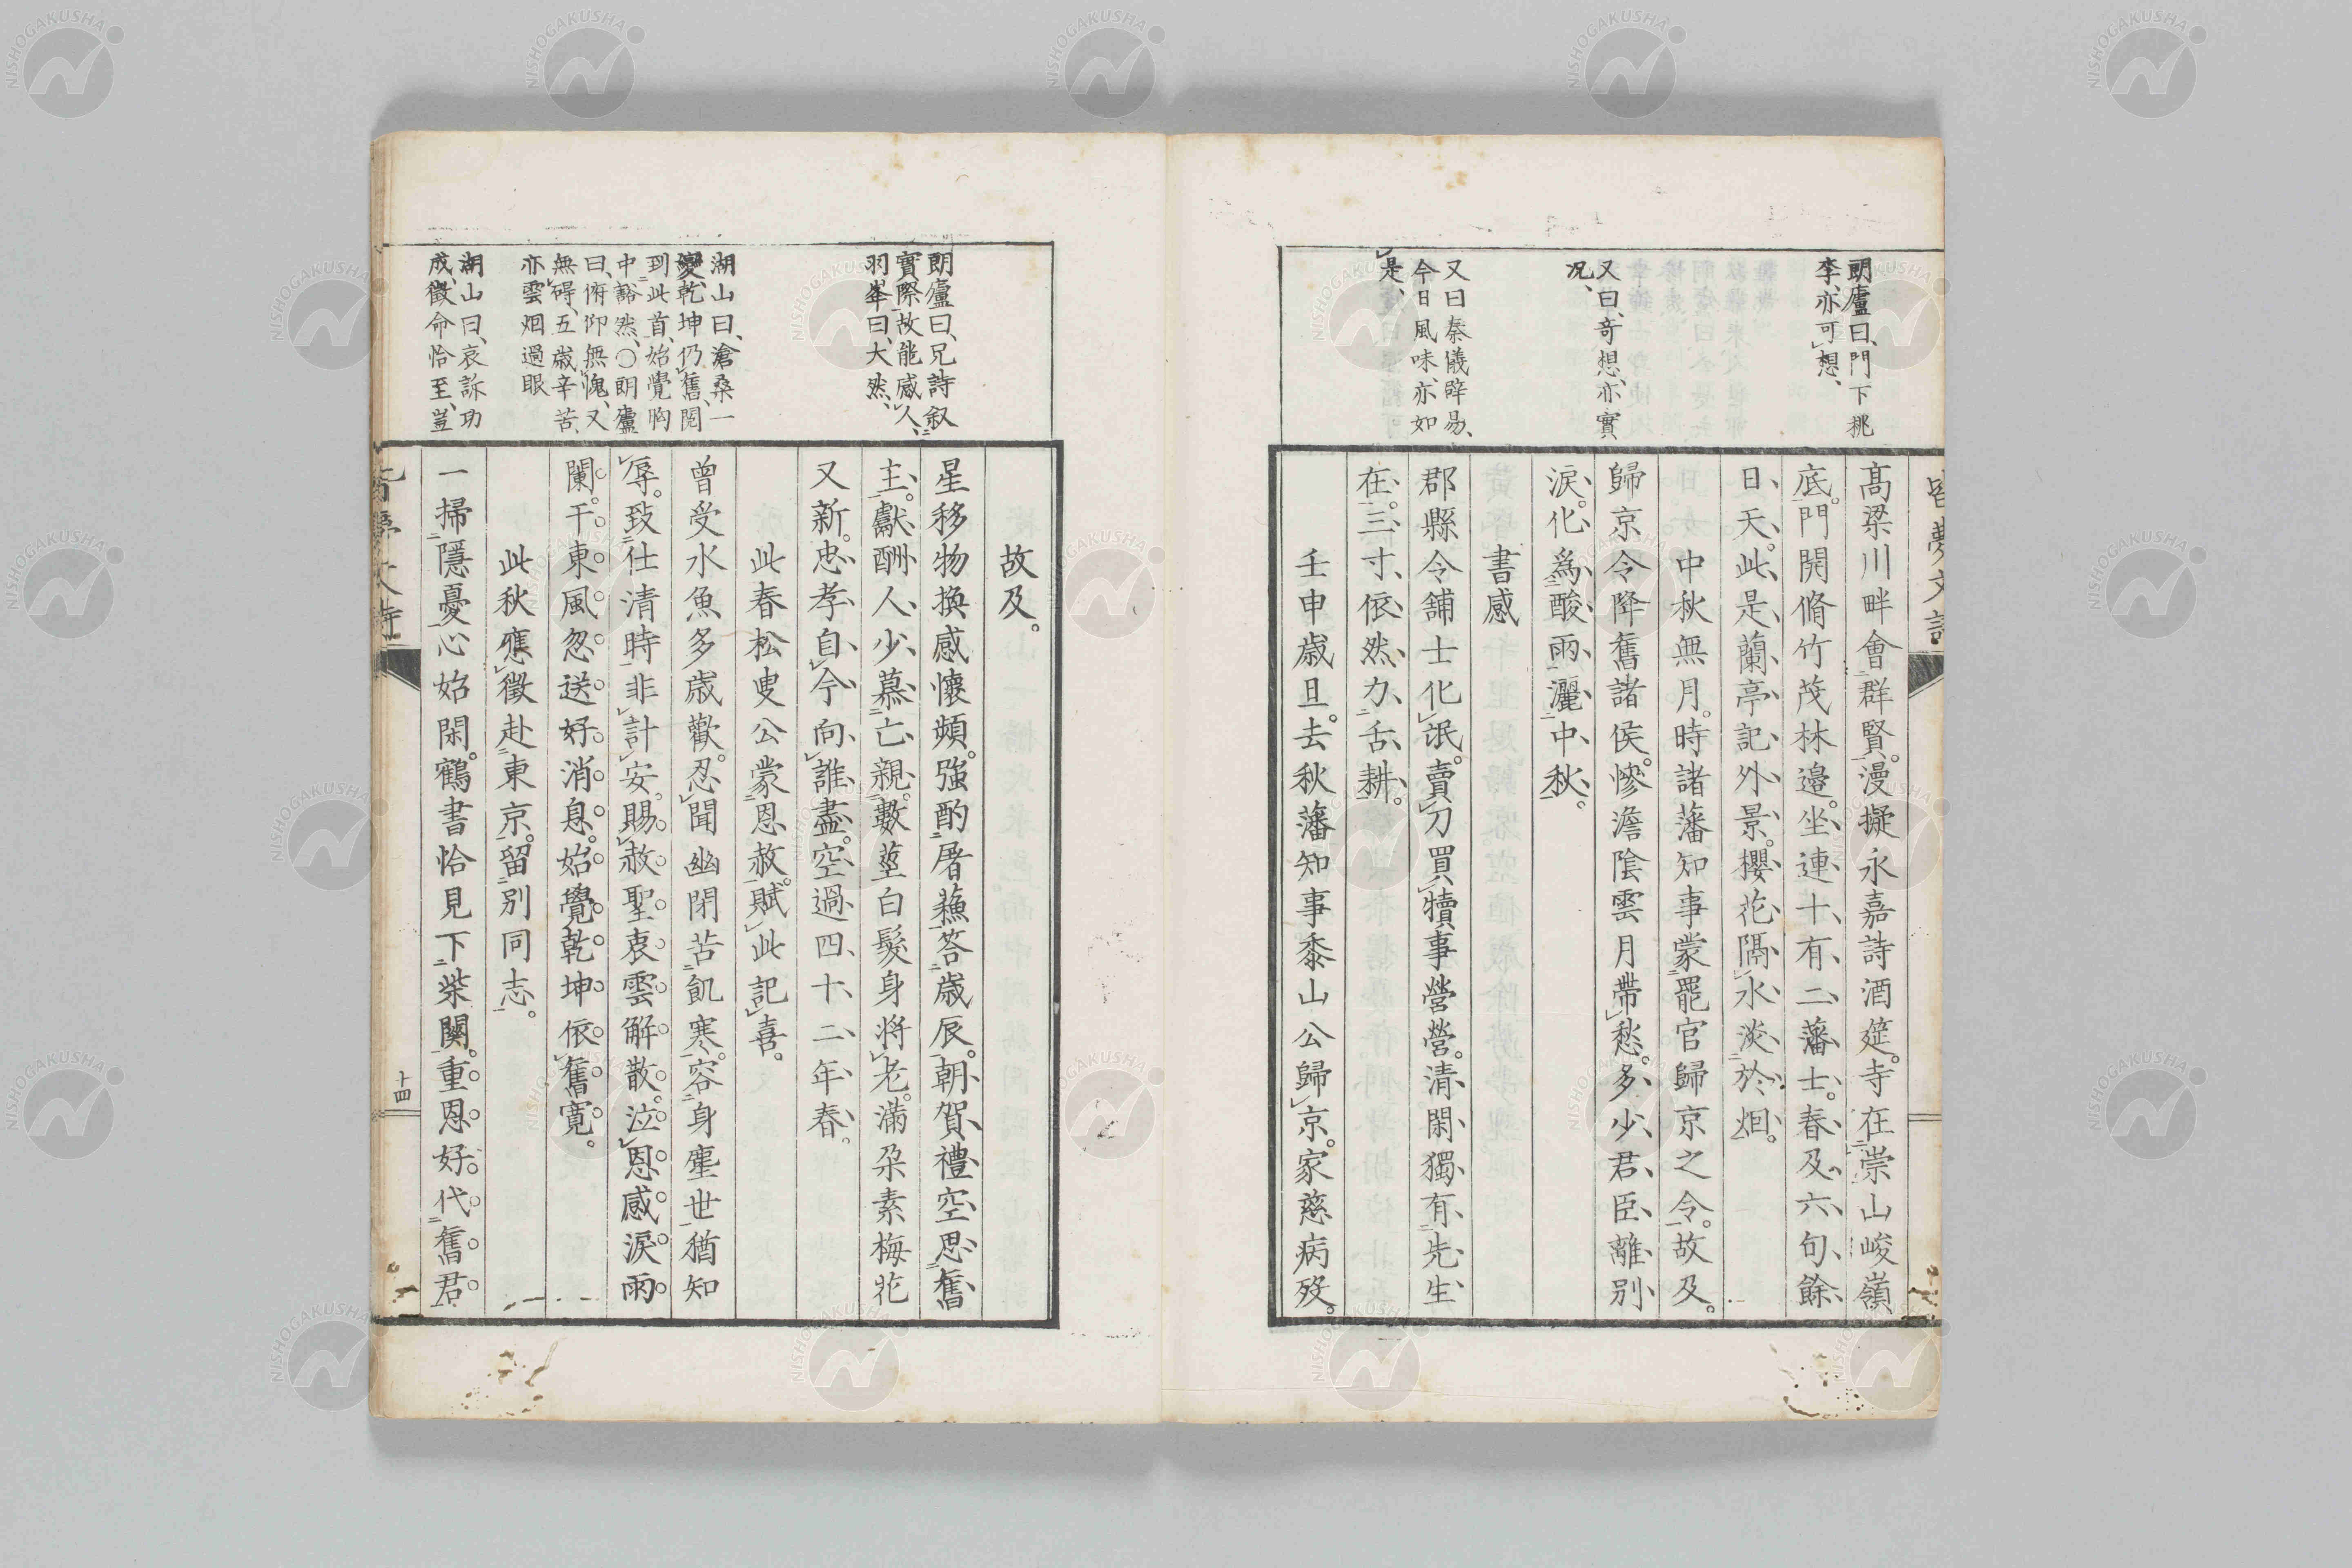 朗廬曰、門下桃
李、亦可想、
又曰、奇想、亦實
况、
又曰秦儀辟易、
今日風味、亦如
是、
高梁川畔會群賢。漫擬永嘉詩酒筵。寺在崇山峻嶺
底。門開脩竹茂林邊。坐連十有二藩士。春及六旬餘
日天。此是蘭亭記外景。櫻花隔水淡於烟。
中秋無月。時諸藩知事蒙罷官歸京之令。故及。
歸京令降舊諸侯。慘澹陰雲月帶愁。多少君臣離別
淚。化爲酸雨灑中秋。
書感
郡縣令舖士化氓。賣刀買犢事營營。清閑獨有先生
在。三寸依然力舌耕。
壬申歳旦。去秋藩知事黍山公歸京。家慈病歿。
朗廬曰、兄詩叙
實際、故能感人、
羽峯曰、大然、
湖山曰、滄桑一
變、乾坤仍舊、閲
到此首、始覺胸
中豁然、〇朗廬
曰、俯仰無愧、又
無碍、五歳辛苦、
亦雲烟過眼
湖山曰、哀訴功
成、徴命恰至、豈
故及。
星移物換感懷頻。強酌屠蘓答歳辰。朝賀禮空思舊
主。獻酬人少慕亡親。數莖白髮身將老。滿朶素梅花
又新。忠孝自今向誰盡。空過四十二年春。
此春松叟公蒙恩赦。賦此記喜。
曾受水魚多歳歡。忍聞幽閉苦飢寒。容身塵世猶知
辱。致仕清時非計安。賜赦聖衷雲解散。泣恩感淚雨
闌干。東風忽送好消息。始覺乾坤依舊寛。
此秋應徴赴東京。留別同志。
一掃隱憂心始閑。鶴書恰見下柴關。重恩好代舊君
十四